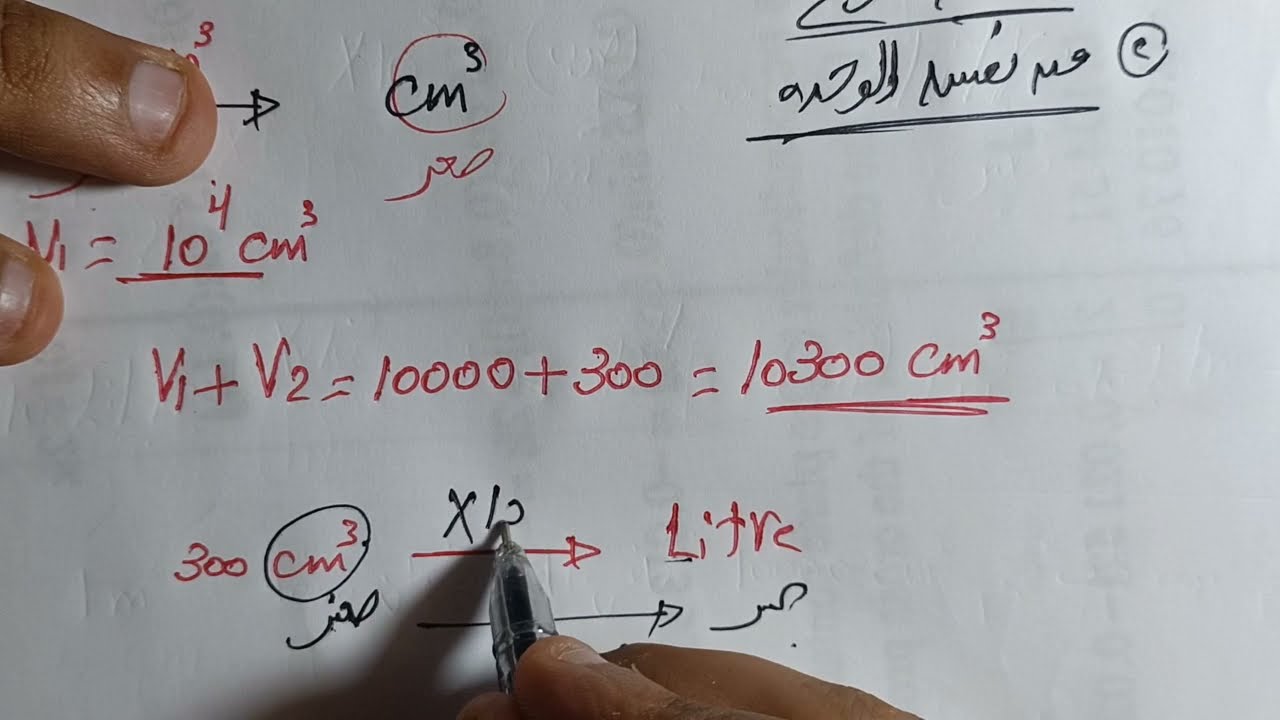 ② من نفس الوحده
cm³
صغير
V₁ = 10⁴ cm³
V₁ + V₂ = 10000 + 300 = 10300 cm³
300 cm³ X10 Litre
صغير